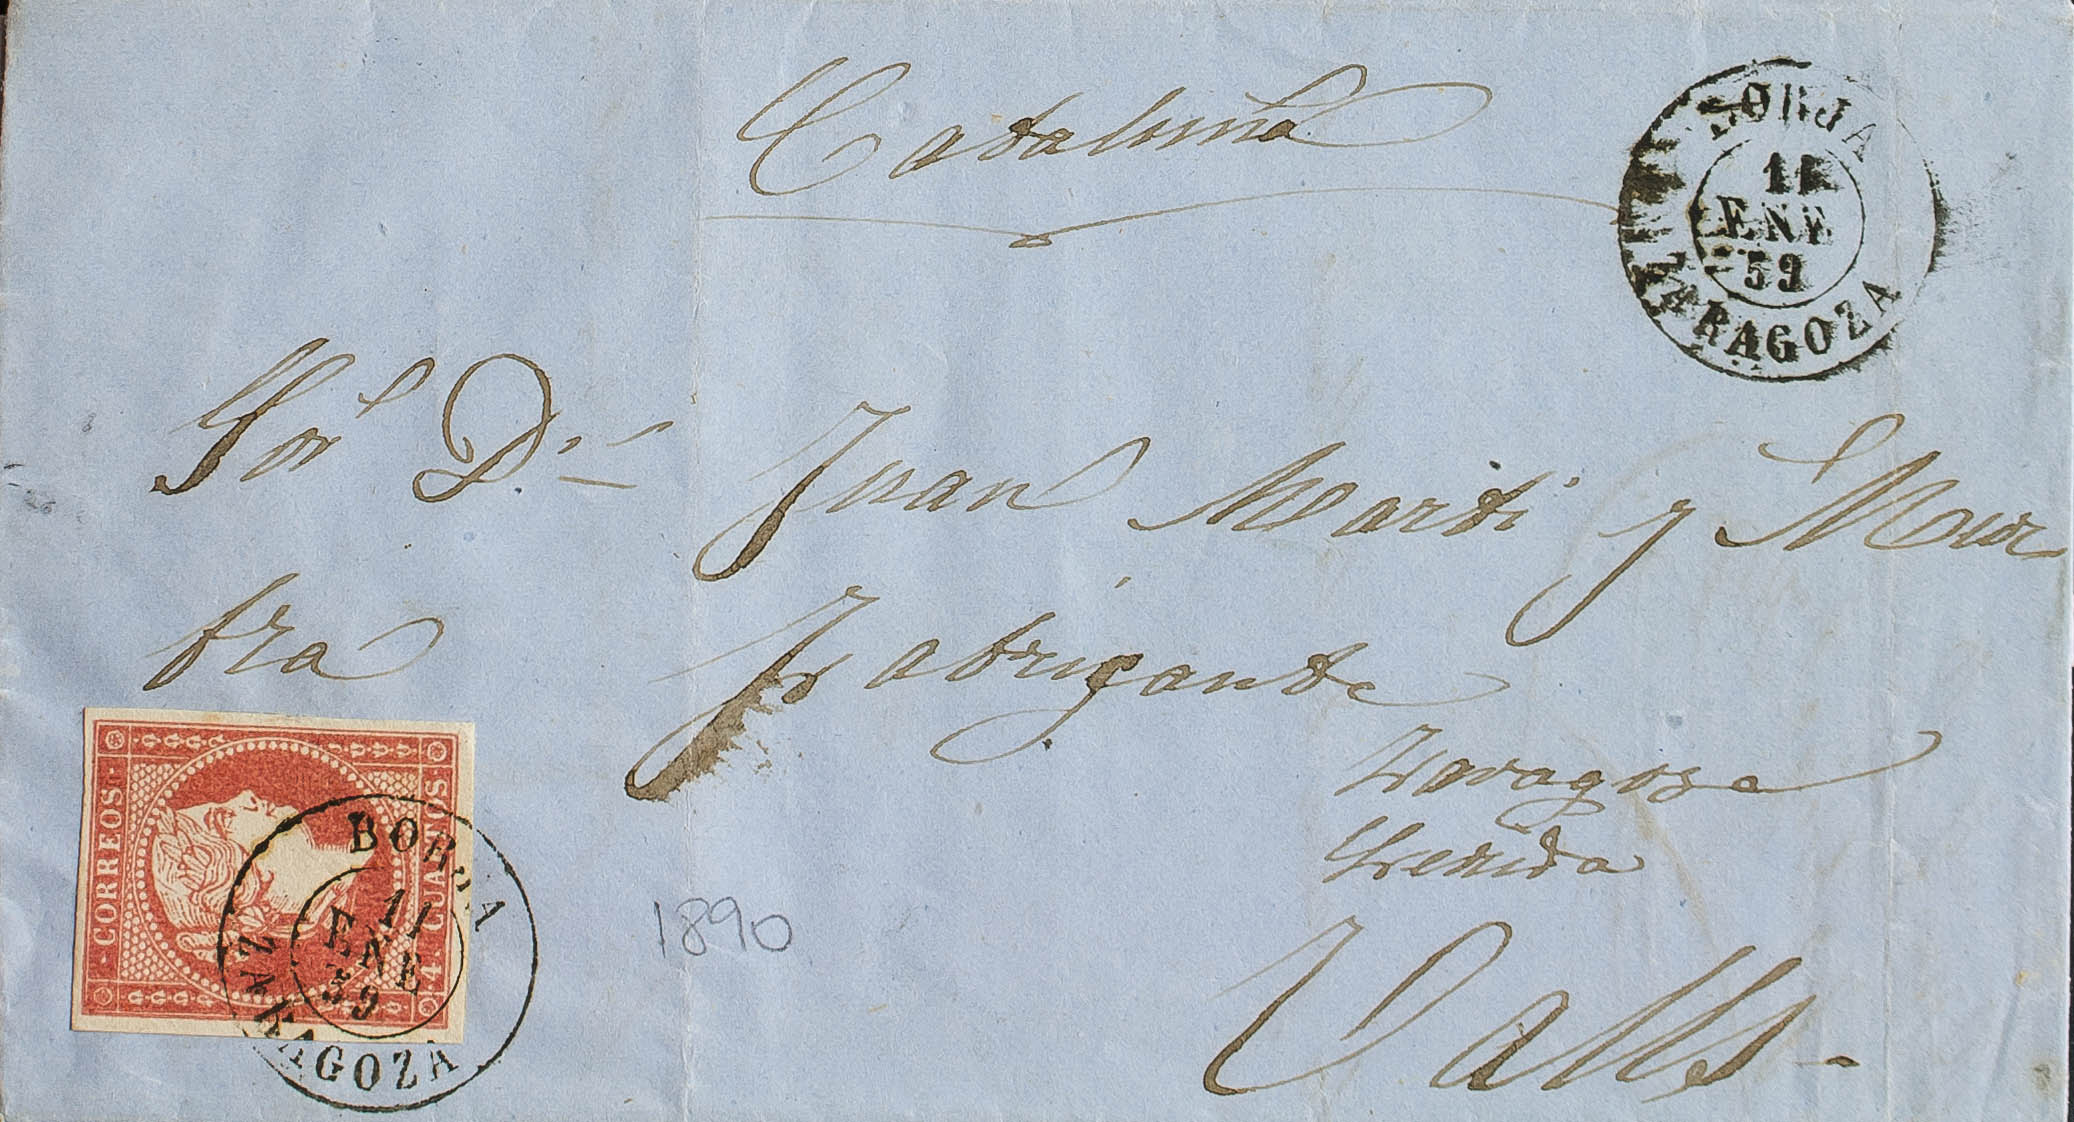 Cataluña
BORJA
11
ENE
59
ZARAGOZA
Sor. Dn. Juan Marti y Mur
tra Fabrigante
Zaragosa
Lerida
Valls
CORREOS
4 CUARTOS
BORJA
11
ENE
59
ZARAGOZA
1890